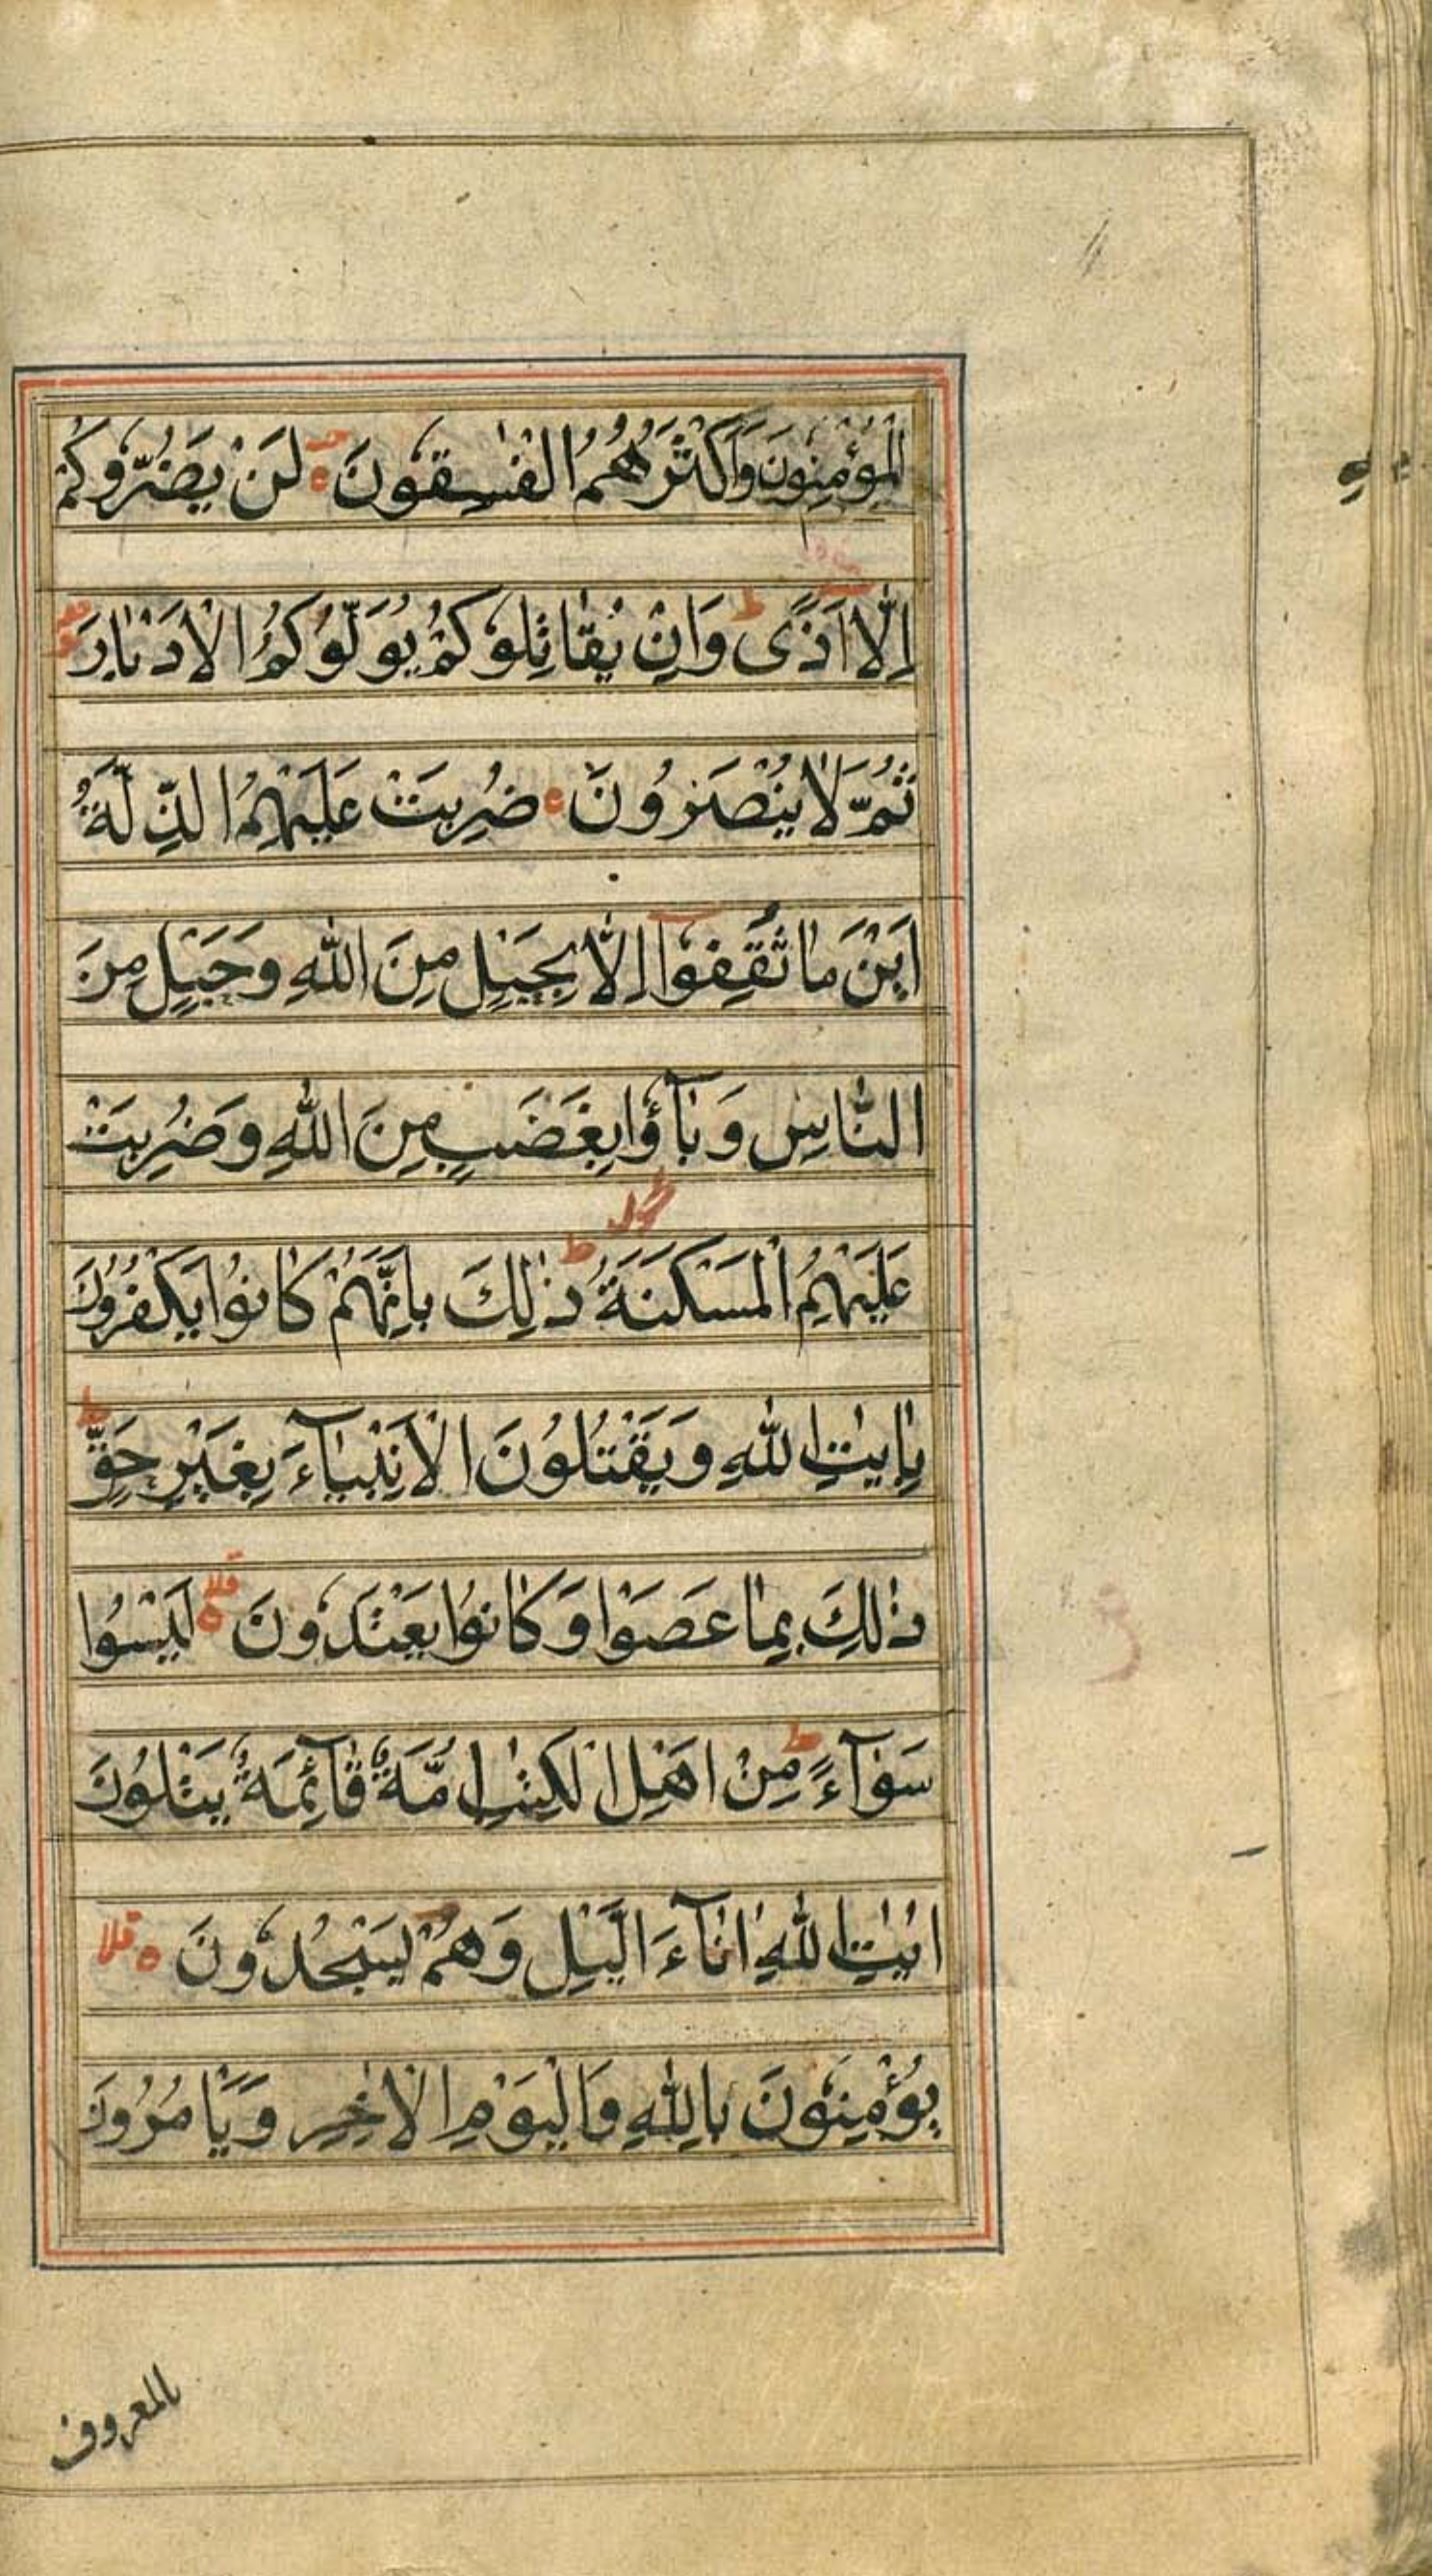 الْمُؤْمِنُونَ وَاَكْثَرُهُمُ الْفٰسِقُونَ لَنْ يَضُرُّوكُمْ
اِلَّا اَذًى ط وَاِنْ يُقَاتِلُوكُمْ يُوَلُّوكُمُ الْاَدْبَارَ
ثُمَّ لَا يُنْصَرُونَ ضُرِبَتْ عَلَيْهِمُ الذِّلَّةُ
اَيْنَ مَا ثُقِفُوٓا اِلَّا بِحَبْلٍ مِنَ اللّٰهِ وَحَبْلٍ مِنَ
النَّاسِ وَبَآؤُا بِغَضَبٍ مِنَ اللّٰهِ وَضُرِبَتْ
عَلَيْهِمُ الْمَسْكَنَةُ ط ذٰلِكَ بِاَنَّهُمْ كَانُوا يَكْفُرُونَ
بِاٰيٰتِ اللّٰهِ وَيَقْتُلُونَ الْاَنْبِيَآءَ بِغَيْرِ حَقٍّ ط
ذٰلِكَ بِمَا عَصَوْا وَكَانُوا يَعْتَدُونَ قلا لَيْسُوا
سَوَآءً ط مِنْ اَهْلِ الْكِتٰبِ اُمَّةٌ قَآئِمَةٌ يَتْلُونَ
اٰيٰتِ اللّٰهِ اٰنَآءَ الَّيْلِ وَهُمْ يَسْجُدُونَ قلا
يُؤْمِنُونَ بِاللّٰهِ وَالْيَوْمِ الْاٰخِرِ وَيَاْمُرُونَ
بالمعروف